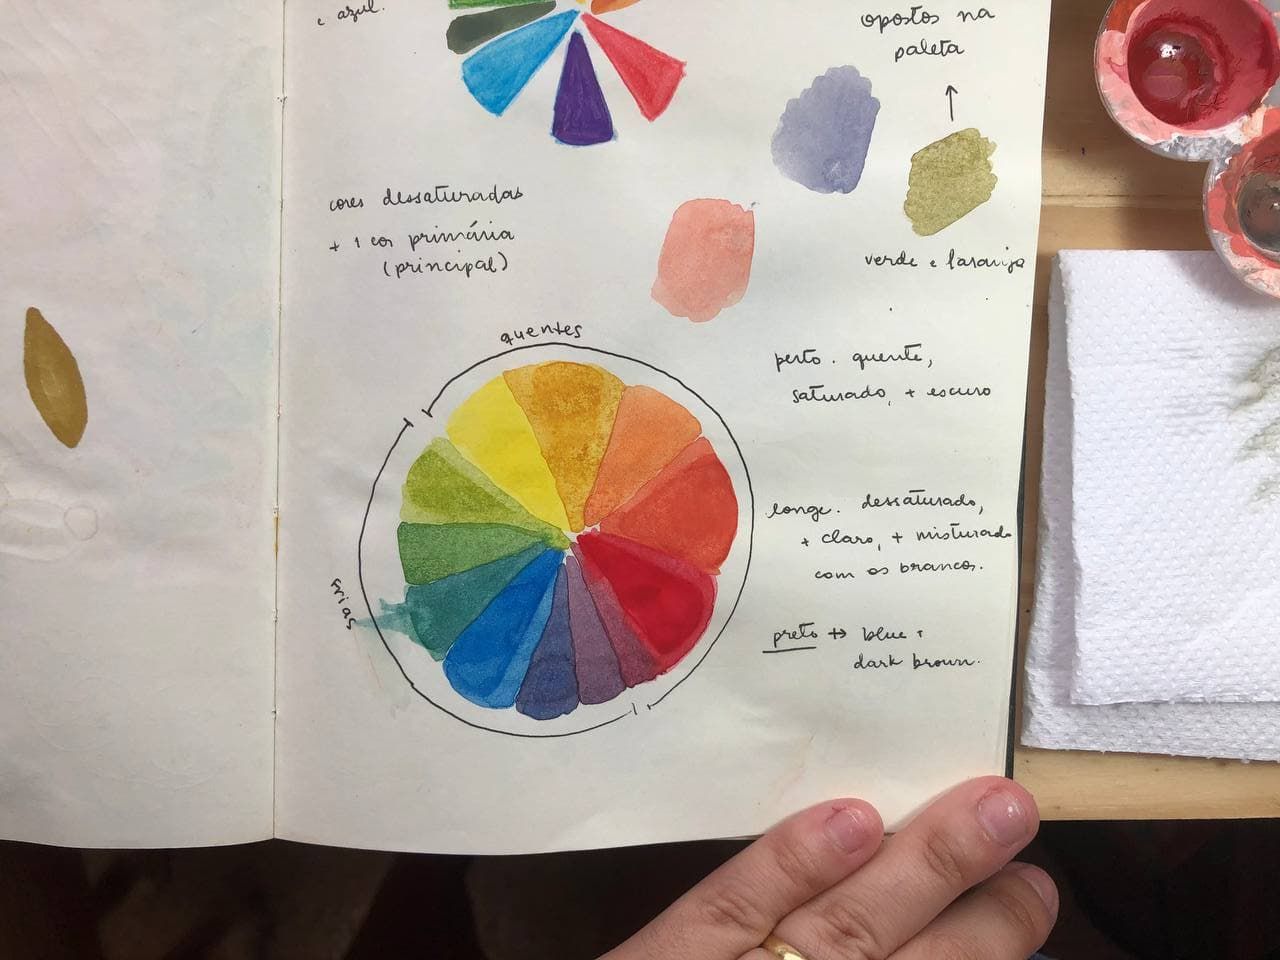 e azul.
opostos na
paleta
cores dessaturadas
+ 1 cor primária
(principal)
verde e laranja
quentes
perto. quente,
saturado, + escuro
longe. dessaturado,
+ claro, + misturado
com os brancos.
frias
preto ↔ blue +
dark brown.